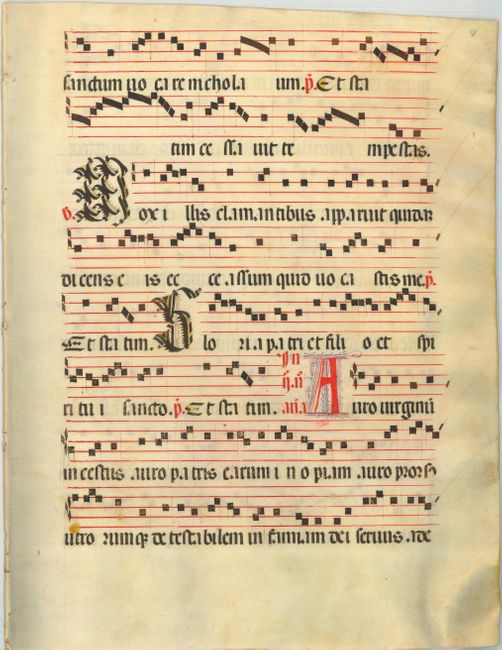 sanctum uo ca re nichola um. p. Et sta
tim ce ssa uit te mpestas.
v. Mox i llis clam antibus appa ruit quidam
di cens e is ec ce assum quid uo ca stis me. p.
Et sta tim. Glo ri a pa tri et fili o et spi
ri tu i sancto. p. Et sta tim. In ij. n aña A uro uirginum
in cestus auro pa tris e arum i n o pi am auro prors
utro rumq de testa bilem in fami am de i seruus ade